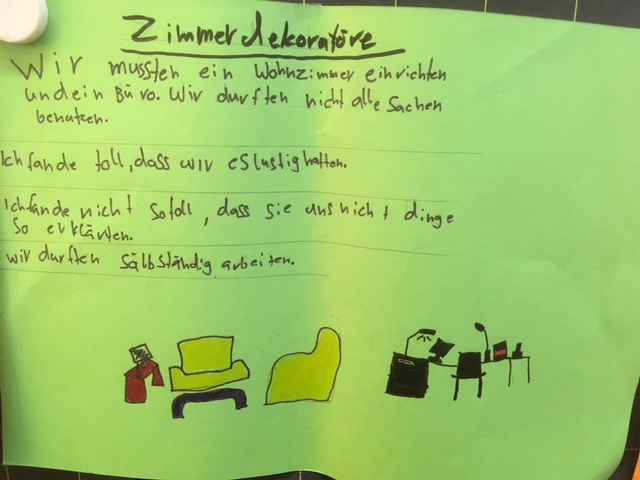 Zimmerdekoratöre
Wir mussten ein Wohnzimmer einrichten
und ein Büro. Wir durften nicht alle Sachen
benutzen.
Ich fande toll, dass wir es lustig hatten.
Ich fande nicht so toll, dass sie uns nicht dinge
so erklärten.
wir durften sälbständig arbeiten.